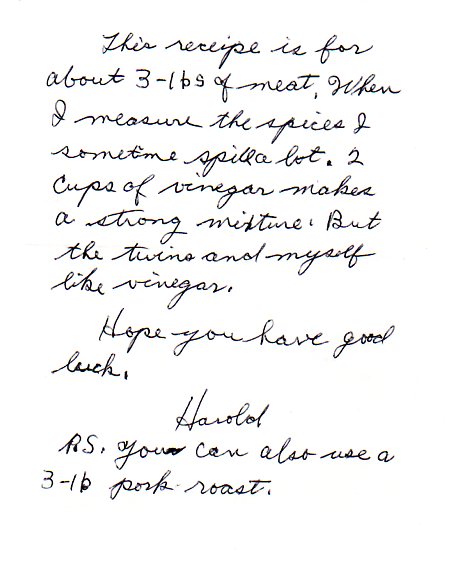 This receipe is for
about 3-lbs of meat. When
I measure the spices I
sometime spill a lot. 2
Cups of vinegar makes
a strong mixture. But
the twins and myself
like vinegar.
Hope you have good
luck.
Harold
P.S. You can also use a
3-lb pork roast.